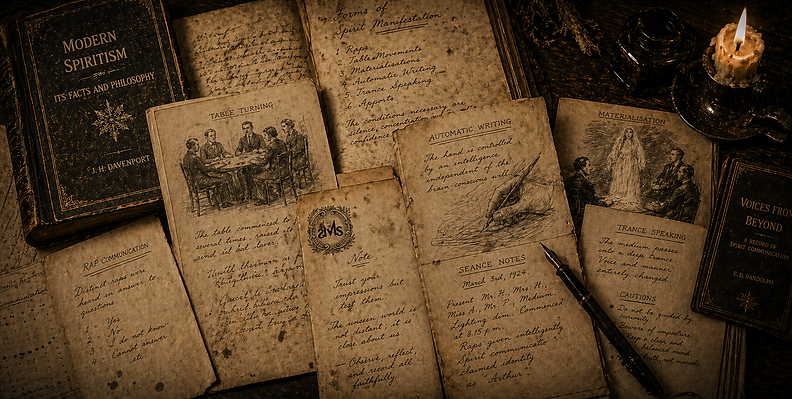 MODERN
SPIRITISM
ITS FACTS AND PHILOSOPHY
J. H. DAVENPORT
Forms of
Spirit Manifestation
1 Raps
2 Table Movements
3 Materialisations
4 Automatic Writing
5 Trance Speaking
6 Apports
The conditions necessary are
silence, concentration and
confidence
TABLE TURNING
The table commenced to
several times, raised its
and set but slower,
AUTOMATIC WRITING
The hand is controlled
by an intelligence
independent of the
brain-conscious will
MATERIALISATION
VOICES FROM
BEYOND
A RECORD OF
SPIRIT COMMUNICATION
E. D. RANDOLPH
RAP COMMUNICATION
Distinct raps were
heard in answer to
questions.
1 Yes
2 No
3 I do not know
4 Cannot answer
etc.
Note
Trust your
impressions but
test them.
The unseen world is
not distant; it is
close about us.
— Observe, reflect,
and record all
faithfully.
SEANCE NOTES
March 3rd, 1924.
Present: Mr. H., Mrs. H.,
Miss A., Mr. P., Medium.
Lighting dim. Commenced
at 8.15 p.m.
Raps given intelligently
Spirit communicatio
claimed identity
as "Arthur".
TRANCE SPEAKING
The medium passes
into a deep trance.
Voice and manner
entirely changed.
CAUTIONS
Do not be guided by
curiosity
Beware of imposture
Keep a clear and
balanced mind
truth, not marvels